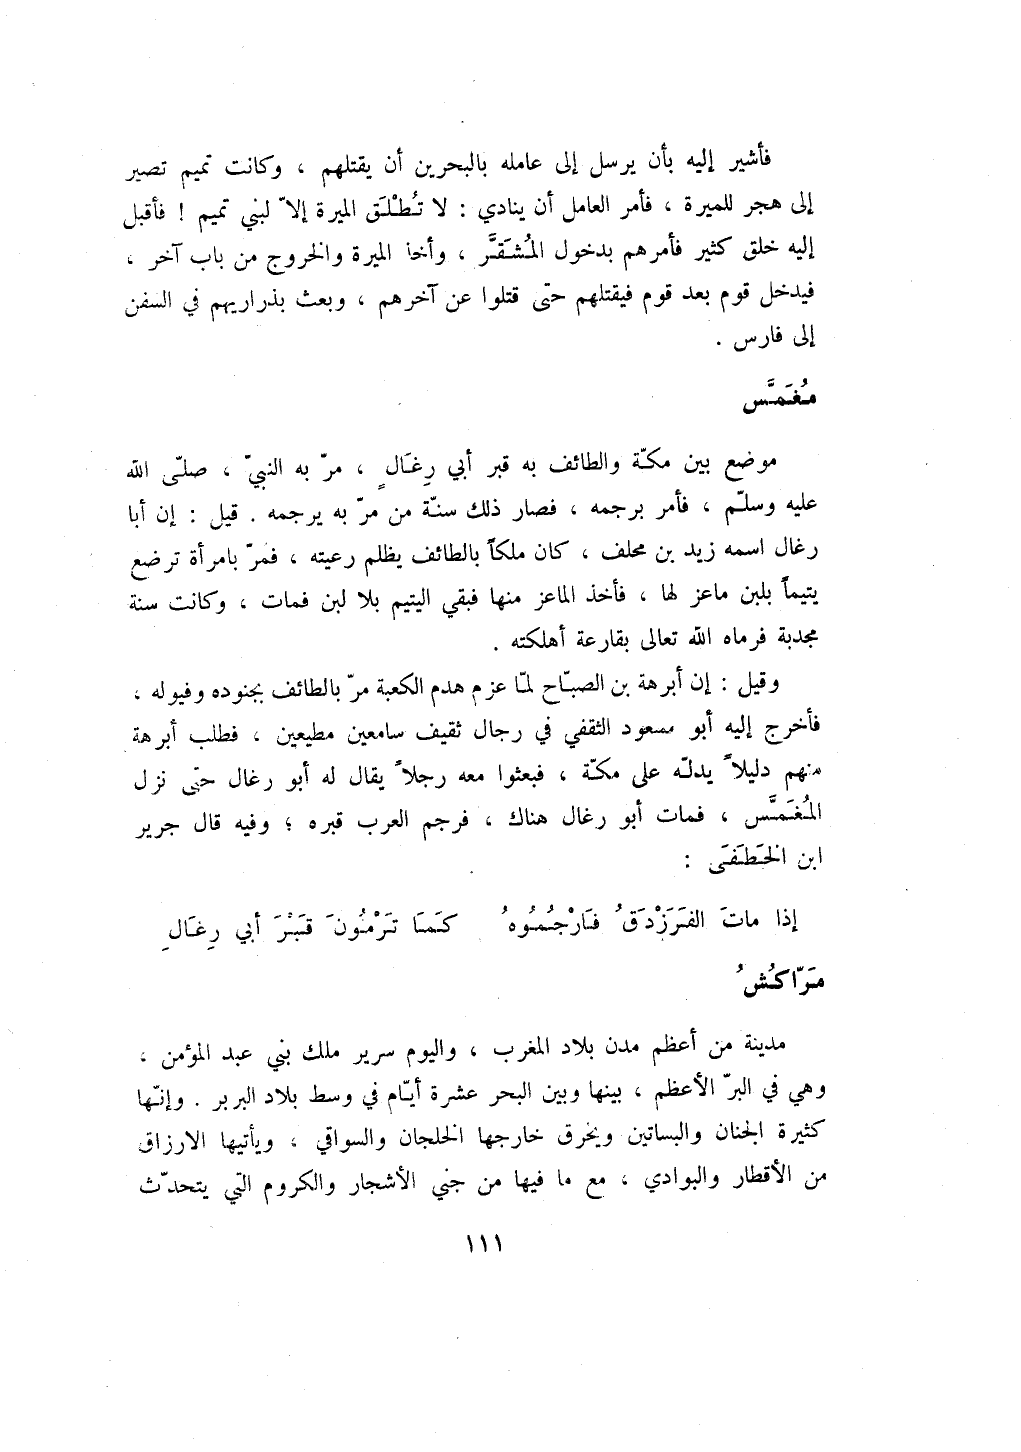 فأشير إليه بأن يرسل إلى عامله بالبحرين أن يقتلهم ، وكانت تميم تصير
إلى هجر للميرة ، فأمر العامل أن ينادي : لا تُطْلَق الميرة إلاّ لبني تميم ! فأقبل
إليه خلق كثير فأمرهم بدخول المُشَقَّر ، وأخذ الميرة والخروج من باب آخر ،
فيدخل قوم بعد قوم فيقتلهم حتّى قتلوا عن آخرهم ، وبعث بذراريهم في السفن
إلى فارس .
مُغَمَّس
موضع بين مكّة والطائف به قبر أبي رِغَالٍ ، مرّ به النبيّ ، صلّى الله
عليه وسلّم ، فأمر برجمه ، فصار ذلك سنّة من مرّ به يرجمه . قيل : إن أبا
رغال اسمه زيد بن محلف ، كان ملكاً بالطائف يظلم رعيته ، فمرّ بامرأة ترضع
يتيماً بلبن ماعز لها ، فأخذ الماعز منها فبقي اليتيم بلا لبن فمات ، وكانت سنة
مجدبة فرماه الله تعالى بقارعة أهلكته .
وقيل : إن أبرهة بن الصبّاح لمّا عزم هدم الكعبة مرّ بالطائف بجنوده وفيوله ،
فأخرج إليه أبو مسعود الثقفي في رجال ثقيف سامعين مطيعين ، فطلب أبرهة
منهم دليلاً يدلّه على مكّة ، فبعثوا معه رجلاً يقال له أبو رغال حتّى نزل
المُغَمَّس ، فمات أبو رغال هناك ، فرجم العرب قبره ؛ وفيه قال جرير
ابن الخَطَفَى :
إذا ماتَ الفَرَزْدَقُ فَارْجُمُوهُ كَمَا تَرْمُونَ قَبْرَ أبي رِغَالِ
مَرّاكُشُ
مدينة من أعظم مدن بلاد المغرب ، واليوم سرير ملك بني عبد المؤمن ،
وهي في البرّ الأعظم ، بينها وبين البحر عشرة أيّام في وسط بلاد البربر . وإنّها
كثيرة الجنان والبساتين ويخرق خارجها الخلجان والسواقي ، ويأتيها الارزاق
من الأقطار والبوادي ، مع ما فيها من جني الأشجار والكروم التي يتحدّث
١١١